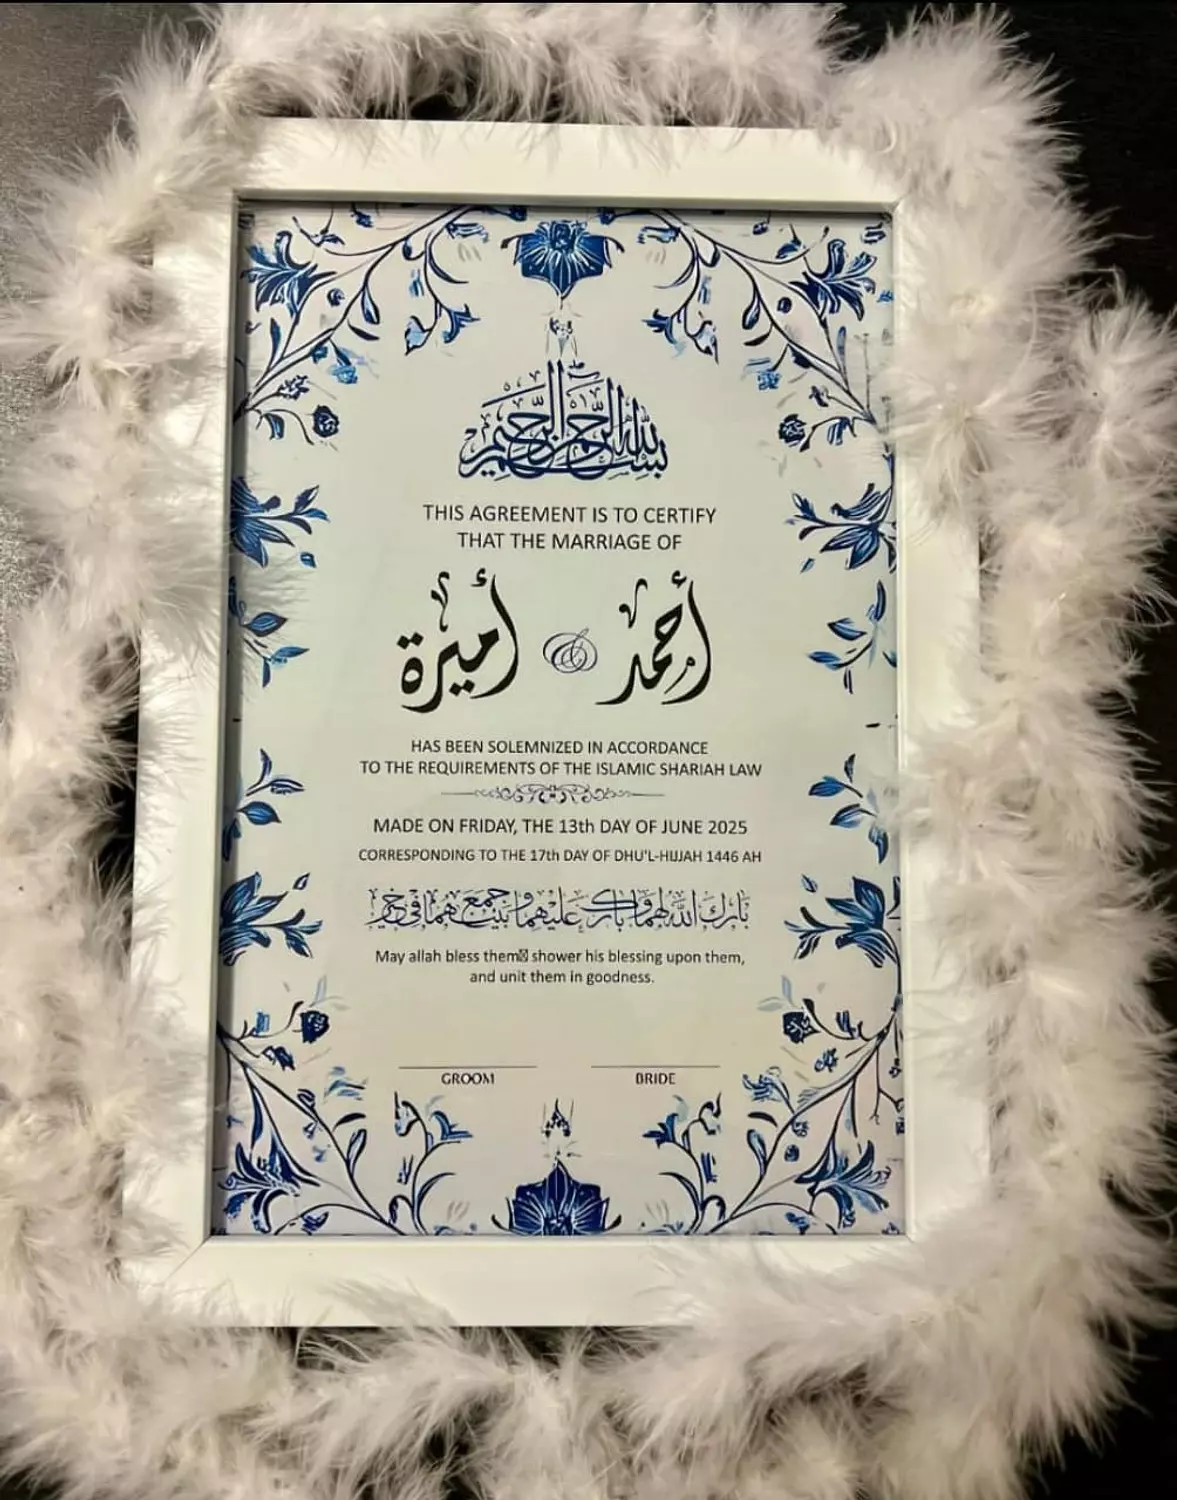 بسم الله الرحمن الرحيم
THIS AGREEMENT IS TO CERTIFY
THAT THE MARRIAGE OF
أحمد & أميرة
HAS BEEN SOLEMNIZED IN ACCORDANCE
TO THE REQUIREMENTS OF THE ISLAMIC SHARIAH LAW
MADE ON FRIDAY, THE 13th DAY OF JUNE 2025
CORRESPONDING TO THE 17th DAY OF DHU'L-HIJJAH 1446 AH
بارك الله لهما وبارك عليهما وجمع بينهما في خير
May allah bless them shower his blessing upon them,
and unit them in goodness.
GROOM BRIDE